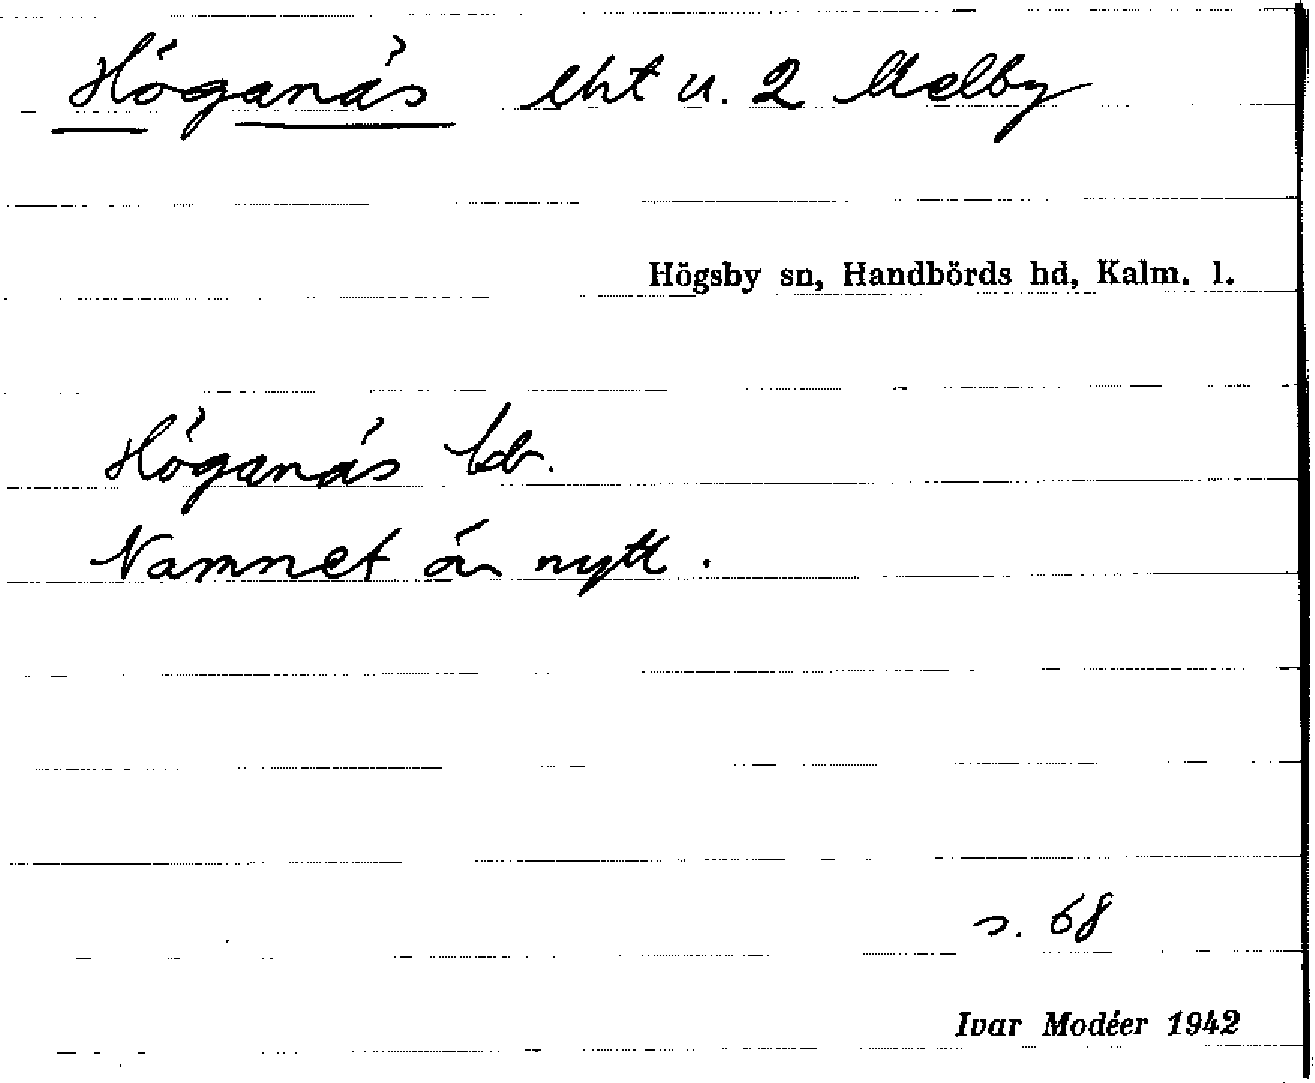 Höganäs lht u. 2 Melby
Högsby sn, Handbörds hd, Kalm. l.
Höganäs
Namnet är nytt.
s. 68
Ivar Modéer 1942